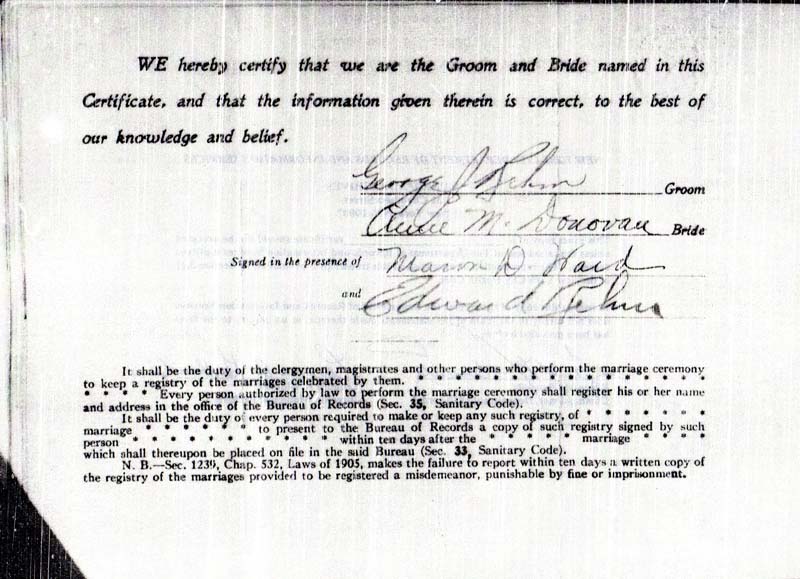 WE hereby certify that we are the Groom and Bride named in this
Certificate, and that the information given therein is correct, to the best of
our knowledge and belief.
George J Rehm Groom
M. Donovan Bride
Signed in the presence of D. Ward
and Edward Rehm
It shall be the duty of the clergymen, magistrates and other persons who perform the marriage ceremony
to keep a registry of the marriages celebrated by them. * * * * * * * * * * * * * *
* * * * Every person authorized by law to perform the marriage ceremony shall register his or her name
and address in the office of the Bureau of Records (Sec. 35, Sanitary Code).
It shall be the duty of every person required to make or keep any such registry, of * * * * * *
marriage * * * * * * * to present to the Bureau of Records a copy of such registry signed by such
person * * * * * * * * * * * within ten days after the * * * * * marriage * * * *
which shall thereupon be placed on file in the said Bureau (Sec. 33, Sanitary Code).
N. B.—Sec. 1239, Chap. 532, Laws of 1905, makes the failure to report within ten days a written copy of
the registry of the marriages provided to be registered a misdemeanor, punishable by fine or imprisonment.